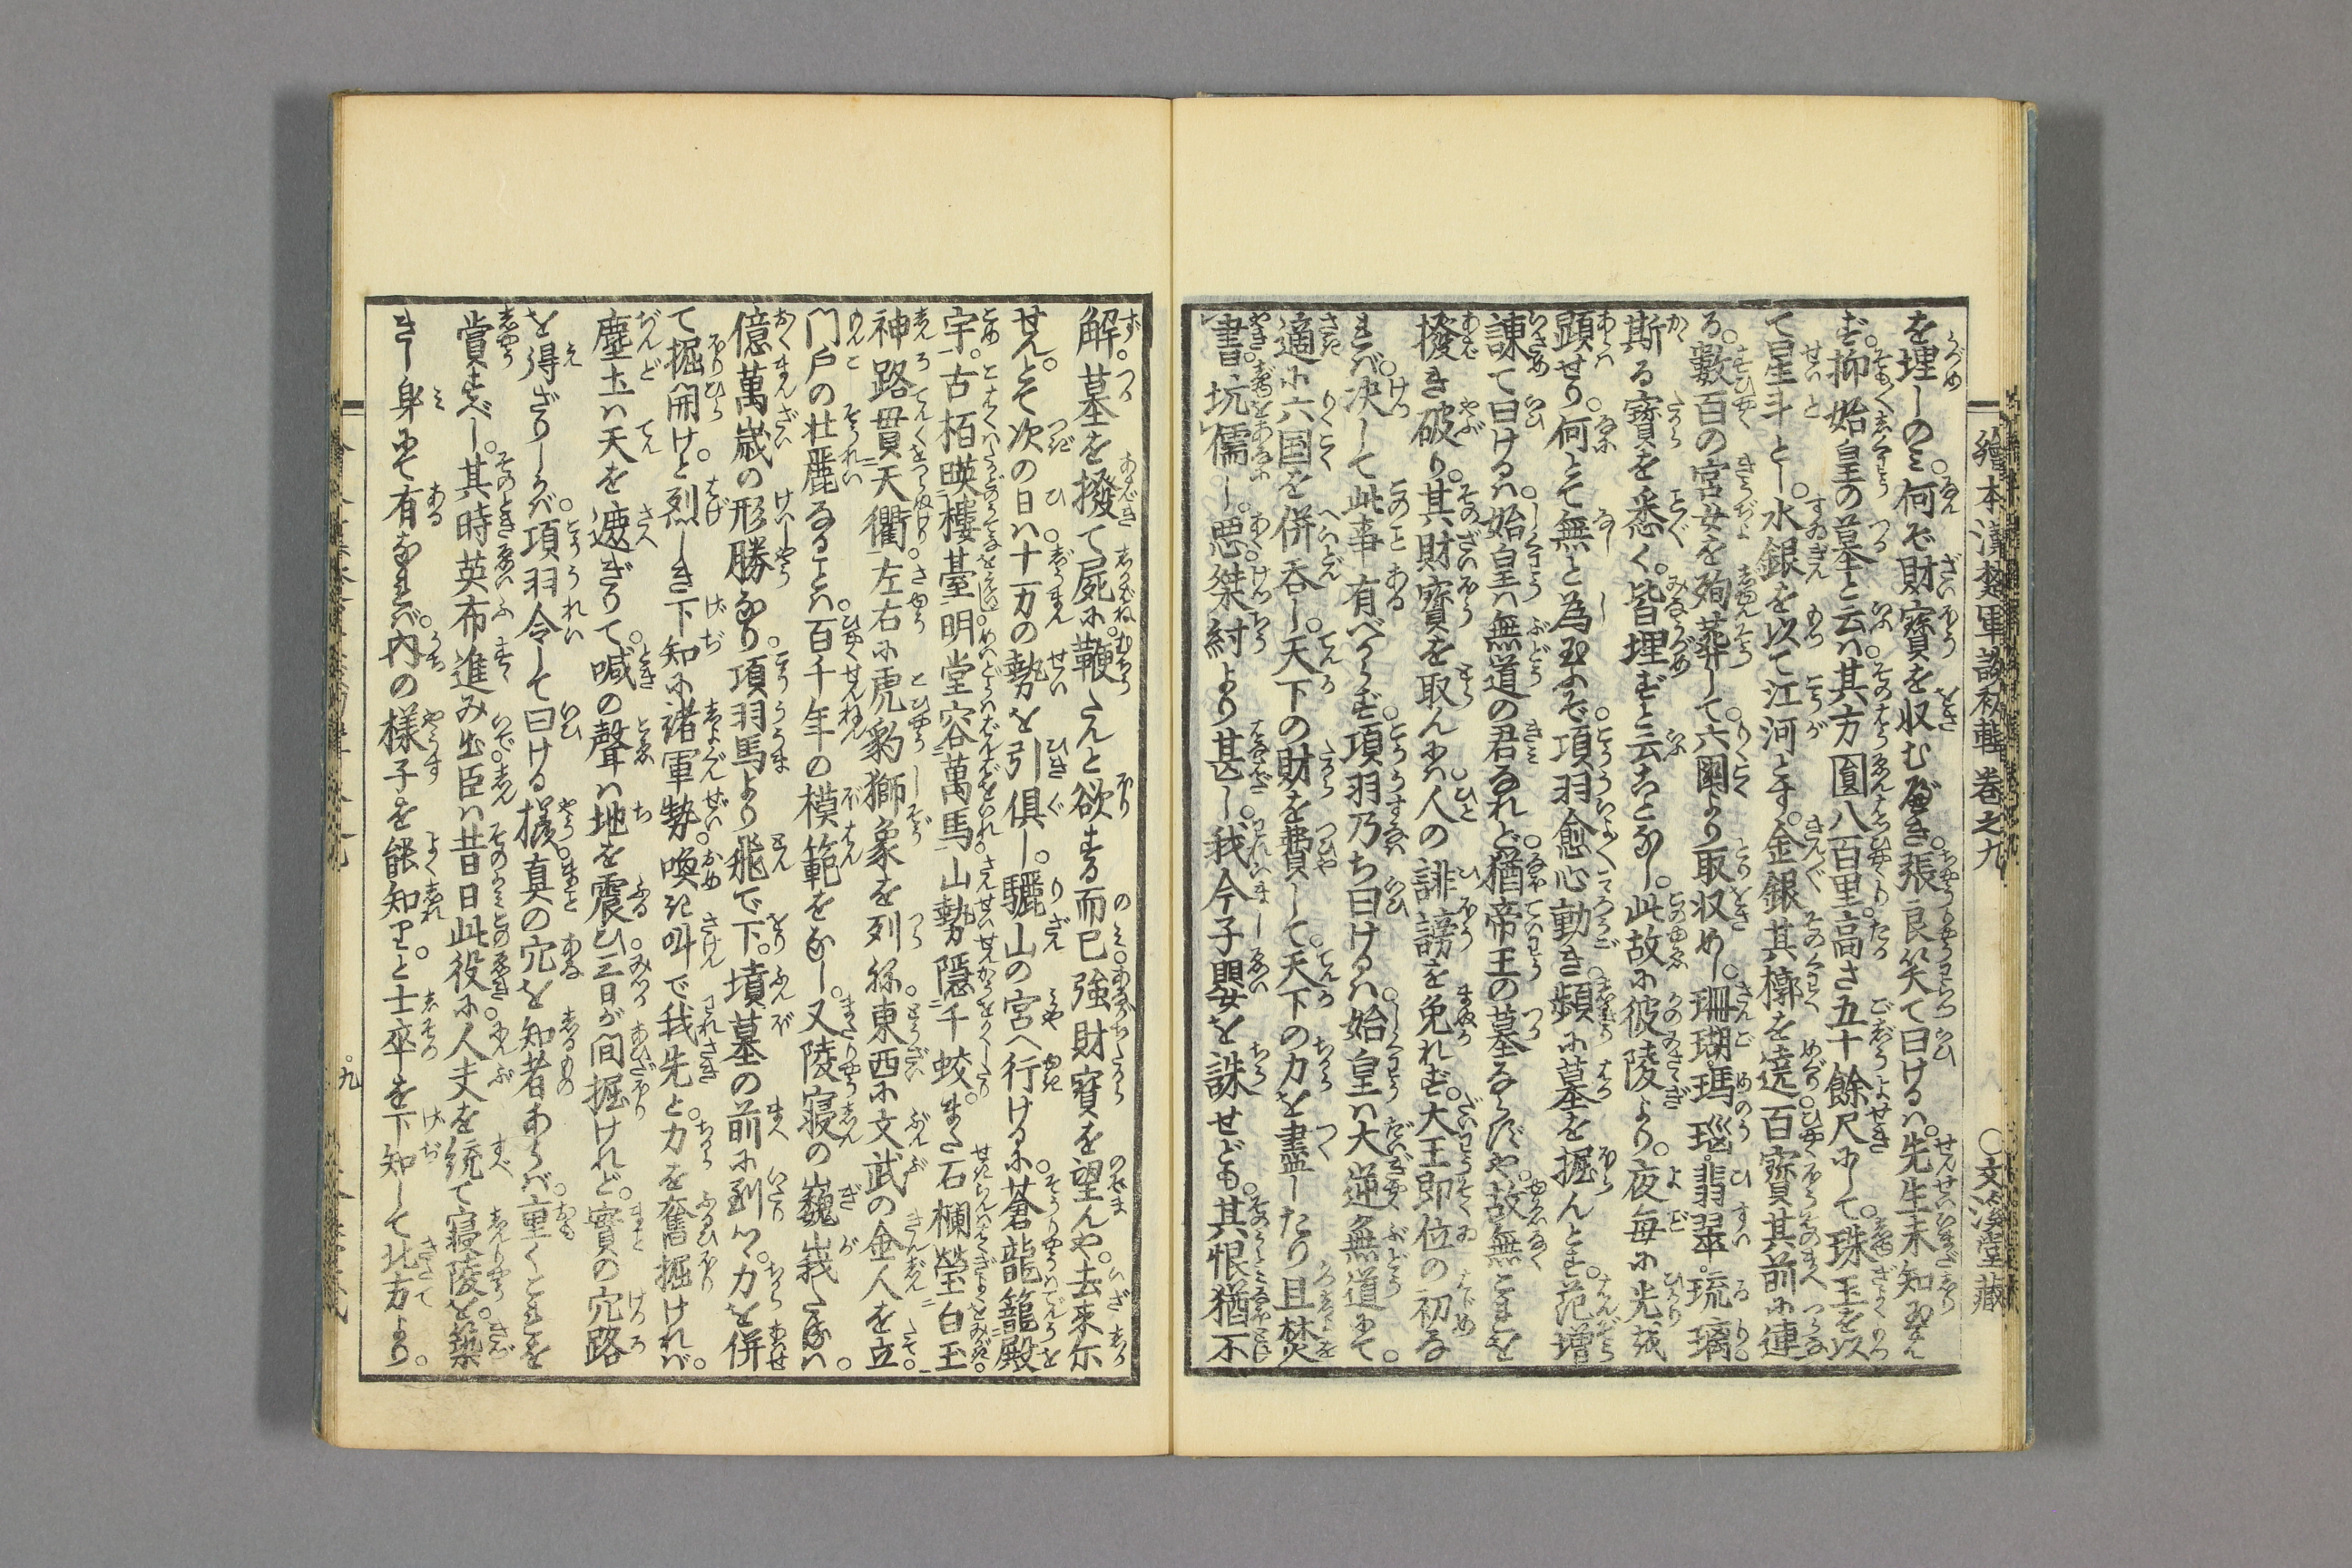 繪本漢楚軍談初輯卷之九 ○文溪堂藏
を埋しのミ。何ぞ財寶を収むべき。張良笑て曰けるハ。先生未知玉ハ
ず。抑始皇の墓と云ハ。其方圓八百里。高さ五十餘尺にして。珠玉を以
て星斗とし。水銀を以て江河とす。金銀其槨を遶。百寳其前に連
る。數百の宮女を殉葬して。六國より取収めし。珊瑚。瑪瑙。翡翠。琉璃。
斯る寳を悉く。皆埋ずと云ことなし。此故に彼陵より。夜毎に光を
顕せり。何とて無と為玉ふぞ。項羽愈心動き。頻に墓を掘んとす。范增
諌て曰けるハ。始皇ハ無道の君なれど。猶帝王の墓ならずや。故無これを
撥き破り。其財寳を取んにハ。人の誹謗を免れず。大王即位の初な
れバ。決して此事有べからず。項羽乃ち曰けるハ。始皇ハ大逆無道にて。
適に六国を併呑し。天下の財を費して。天下の力を盡したり且焚
書坑儒し。悪桀紂より甚し。我今子嬰を誅せども。其恨猶不
解。墓を撥て屍に。鞭たんと欲する而已。強財寳を望んや。去来尓
せんとて。次の日ハ。十万の勢を引倶し。驪山の宮へ行けるに。蒼龍籠殿
宇。古栢暎樓臺。明堂容萬馬。山勢隱千蛟。また石欄瑩白玉。
神路貫天衢。左右に虎豹獅象を列ね。東西に文武の金人を立。
門戸の壮麗なることハ。百千年の模範をなし。又陵寝の巍峩たるハ。
億萬歳の形勝なり。項羽馬より飛で下。墳墓の前に到りつ。力を併
て掘開けと。烈しき下知に諸軍勢。喚き叫で我先と。力を奮掘ければ。
塵土ハ天を遮ぎりて。喊の聲ハ地を震ひ。三日が間掘けれど。實の穴路
を得ざりしかバ。項羽令して曰ける様。真の穴を知者あらバ。重くこれを
賞すべし。其時英布進み出。臣ハ昔日此役に。人夫を統て寝陵を。築
きし身にて有なれバ。内の様子を能知り。と士卒を下知して北方より。
九